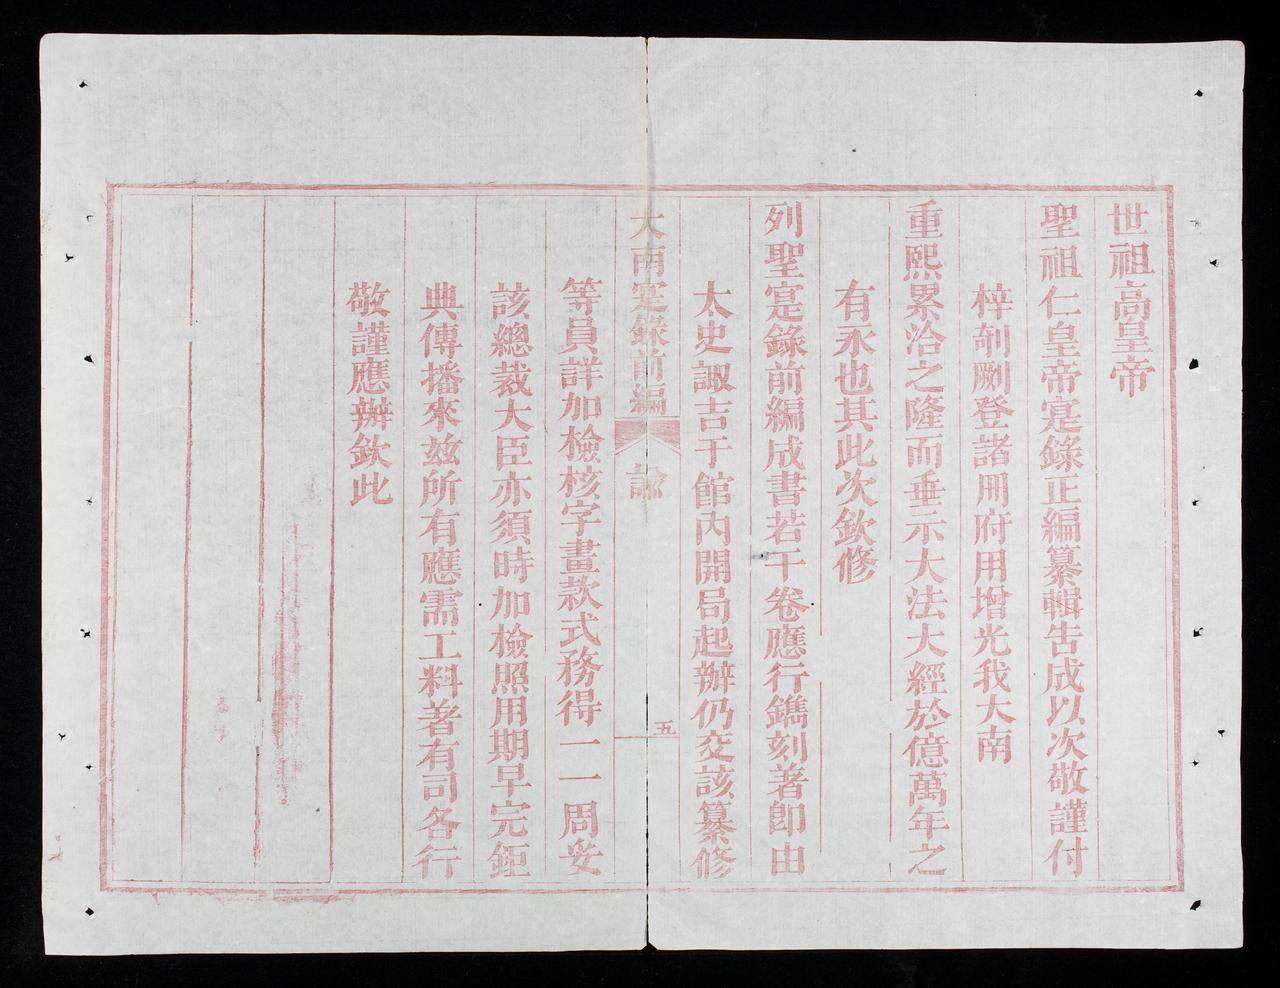 世祖高皇帝
聖祖仁皇帝寔錄正編纂輯告成以次敬謹付
梓剞劂登諸冊府用增光我大南
重熙累洽之隆而垂示大法大經於億萬年之
有永也其此次欽修
列聖寔錄前編成書若干卷應行鐫刻著即由
太史諏吉于館內開局起辦仍交該纂修
大南寔錄前編 諭 五
等員詳加檢核字畫款式務得一一周妥
該總裁大臣亦須時加檢照用期早完鉅
典傳播來玆所有應需工料著有司各行
敬謹應辦欽此